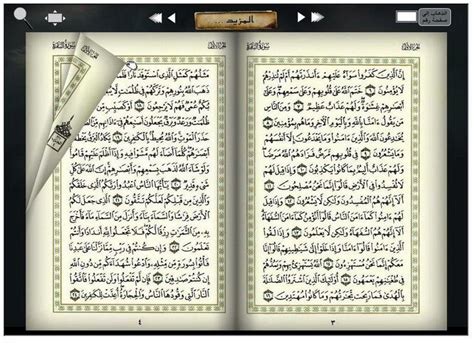 المزيد ...
الذهاب إلى
صفحة رقم
سورة البقرة
الجزء الأول
إن الذين كفروا سواء عليهم ءأنذرتهم أم لم تنذرهم
لا يؤمنون ٦ ختم الله على قلوبهم وعلى سمعهم وعلى
أبصرهم غشوة ولهم عذاب عظيم ٧ ومن الناس من يقول
ءامنا بالله وباليوم الأخر وما هم بمؤمنين ٨
يخدعون الله والذين ءامنوا وما يخدعون إلا أنفسهم
وما يشعرون ٩ في قلوبهم مرض فزادهم الله مرضا
ولهم عذاب أليم بما كانوا يكذبون ١٠ وإذا قيل
لهم لا تفسدوا في الأرض قالوا إنما نحن مصلحون ١١
ألا إنهم هم المفسدون ولكن لا يشعرون ١٢ وإذا قيل
لهم ءامنوا كما ءامن الناس قالوا أنؤمن كما ءامن السفهاء
ألا إنهم هم السفهاء ولكن لا يعلمون ١٣ وإذا لقوا
الذين ءامنوا قالوا ءامنا وإذا خلوا إلى شيطينهم قالوا إنا
معكم إنما نحن مستهزءون ١٤ الله يستهزئ بهم ويمدهم
في طغينهم يعمهون ١٥ أولئك الذين اشتروا الضللة
بالهدى فما ربحت تجرتهم وما كانوا مهتدين ١٦
٣
سورة البقرة
الجزء الأول
مثلهم كمثل الذي استوقد نارا
ذهب الله بنورهم وتركهم في ظلمت
بكم عمي فهم لا يرجعون ١٨
ظلمت ورعد وبرق يجعلون أصبعهم
حذر الموت والله محيط بالكفرين ١٩
أبصرهم كلما أضاء لهم مشوا فيه وإذا أظلم عليهم قاموا
ولو شاء الله لذهب بسمعهم وأبصرهم إن الله على كل
شيء قدير ٢٠ يأيها الناس اعبدوا ربكم الذي خلقكم
والذين من قبلكم لعلكم تتقون ٢١ الذي جعل لكم
الأرض فرشا والسماء بناء وأنزل من السماء ماء فأخرج
به من الثمرت رزقا لكم فلا تجعلوا لله أندادا وأنتم
تعلمون ٢٢ وإن كنتم في ريب مما نزلنا على عبدنا
فأتوا بسورة من مثله وادعوا شهداءكم من دون الله
إن كنتم صدقين ٢٣ فإن لم تفعلوا ولن تفعلوا فاتقوا
النار التي وقودها الناس والحجارة أعدت للكفرين ٢٤
٤